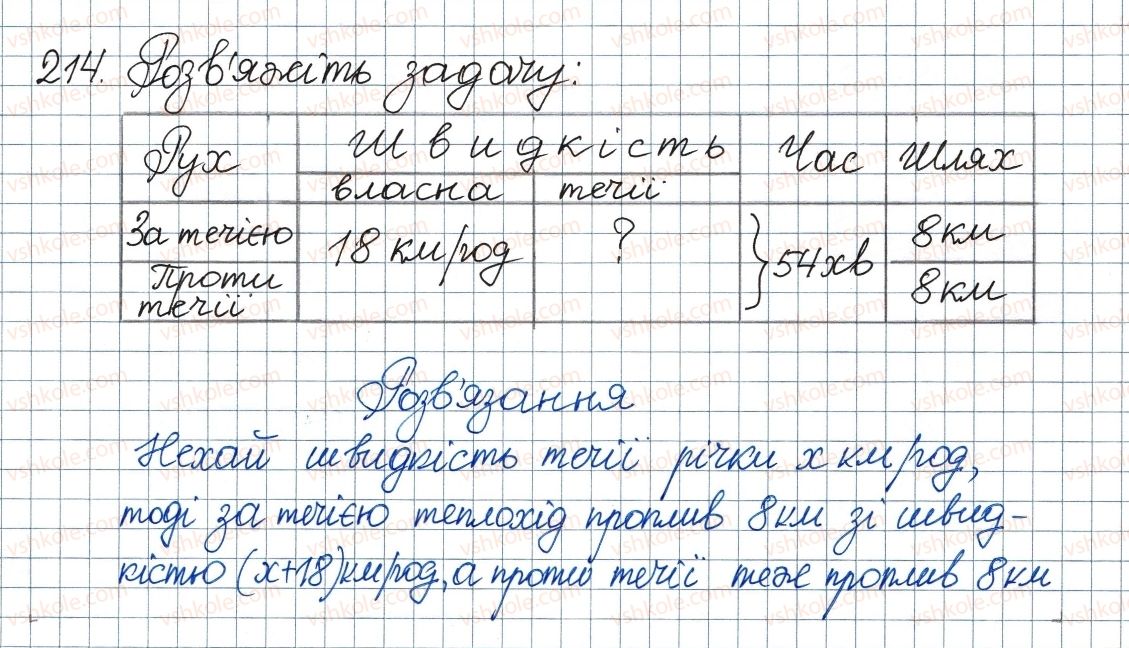 214. Розв'яжіть задачу:
Рух Швидкість Час Шлях
власна течії
За течією 18 км/год ? } 54 хв 8 км
Проти течії 8 км
Розв'язання
Нехай швидкість течії річки x км/год,
тоді за течією теплохід проплив 8 км зі швид-
кістю (x+18) км/год, а проти течії теже проплив 8 км